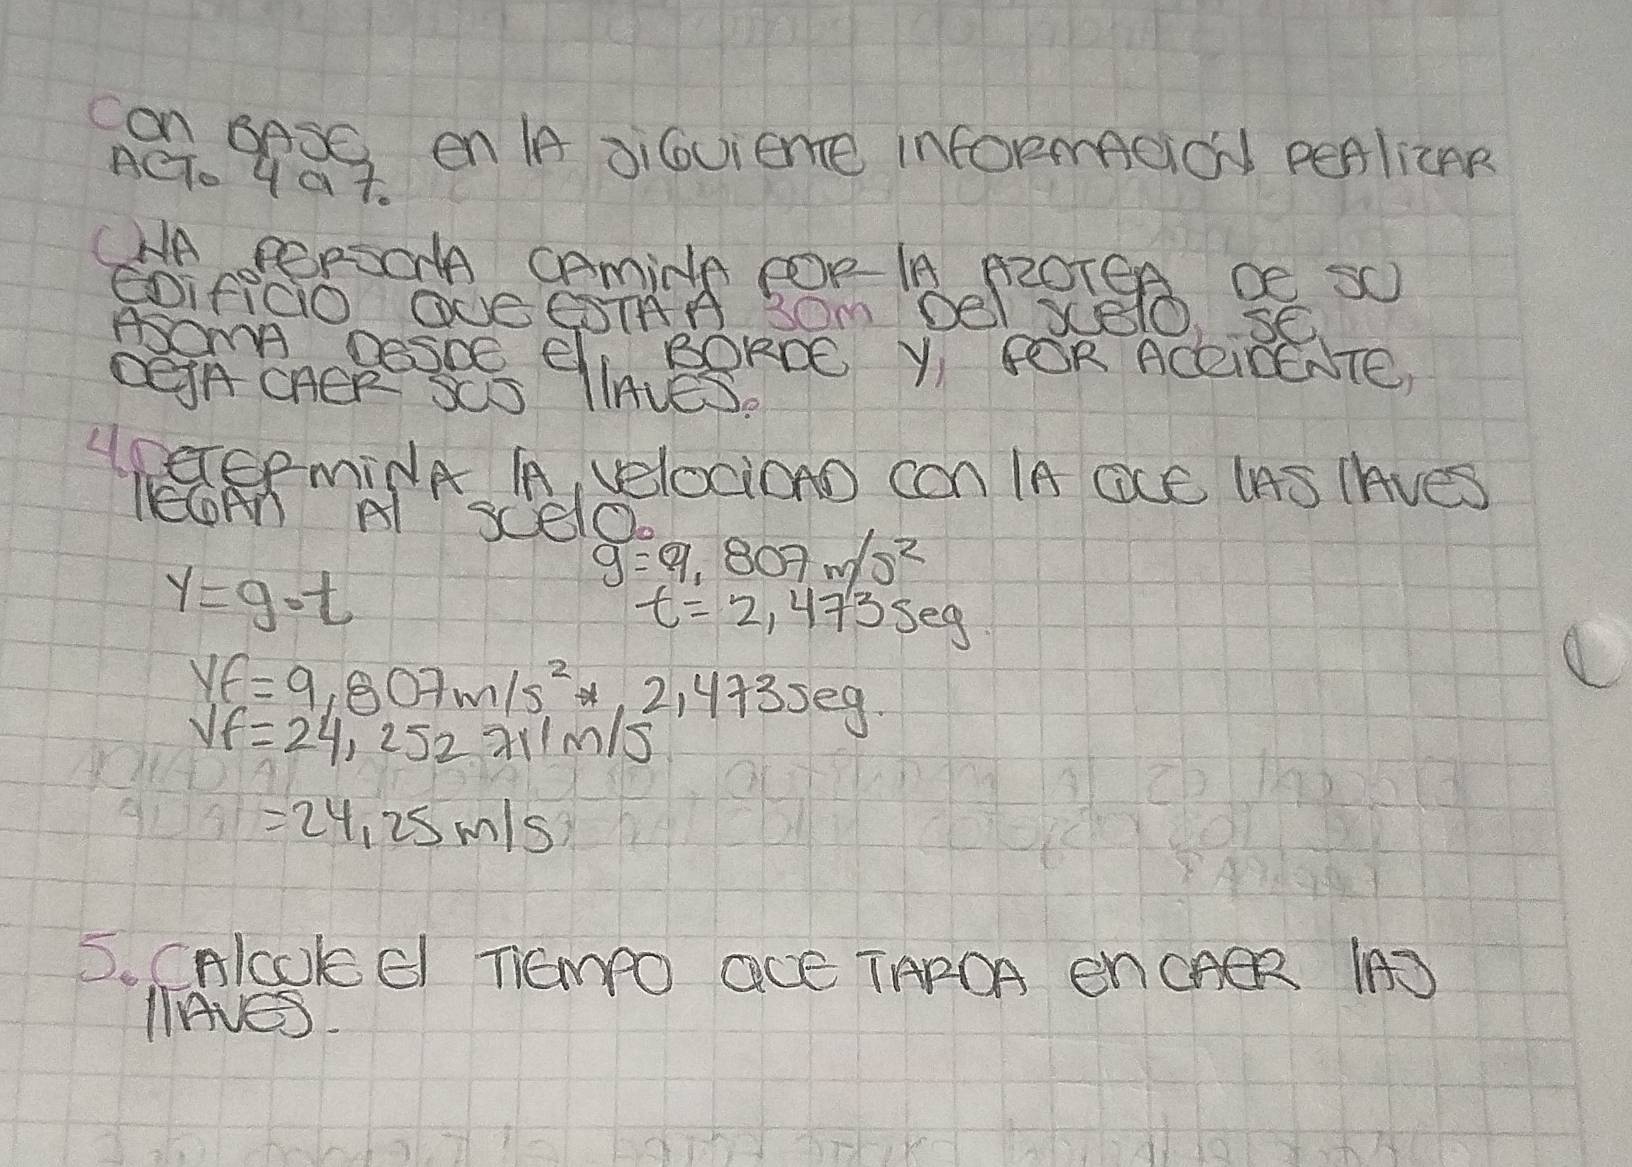 Con BASE en lA SiGUiENTE iNFORMACióN REAlizAR
ACT. 4 a 7.
UNA PERSONA CAMiNA POR lA AZOTEA DE SU
EDiFiCiO QUE ESTA A 30m DEl SUElO, SE
ASOMA DESDE El BORDE Y, POR ACCiDENTE,
DEJA CAER SUS llAVES.
4. DETERMiNA lA VElOCiDAD CON lA QUE lAS llAVES
llEGAN Al SUElO.
g=9,807 m/s²
Y=g·t
t=2,473 seg.
Vf=9,807m/s² * 2,473seg.
Vf=24,252 711m/s
=24,25 m/s
5. CAlCUlE El TiEMPO QUE TARDA EN CAER lAS
llAVES.